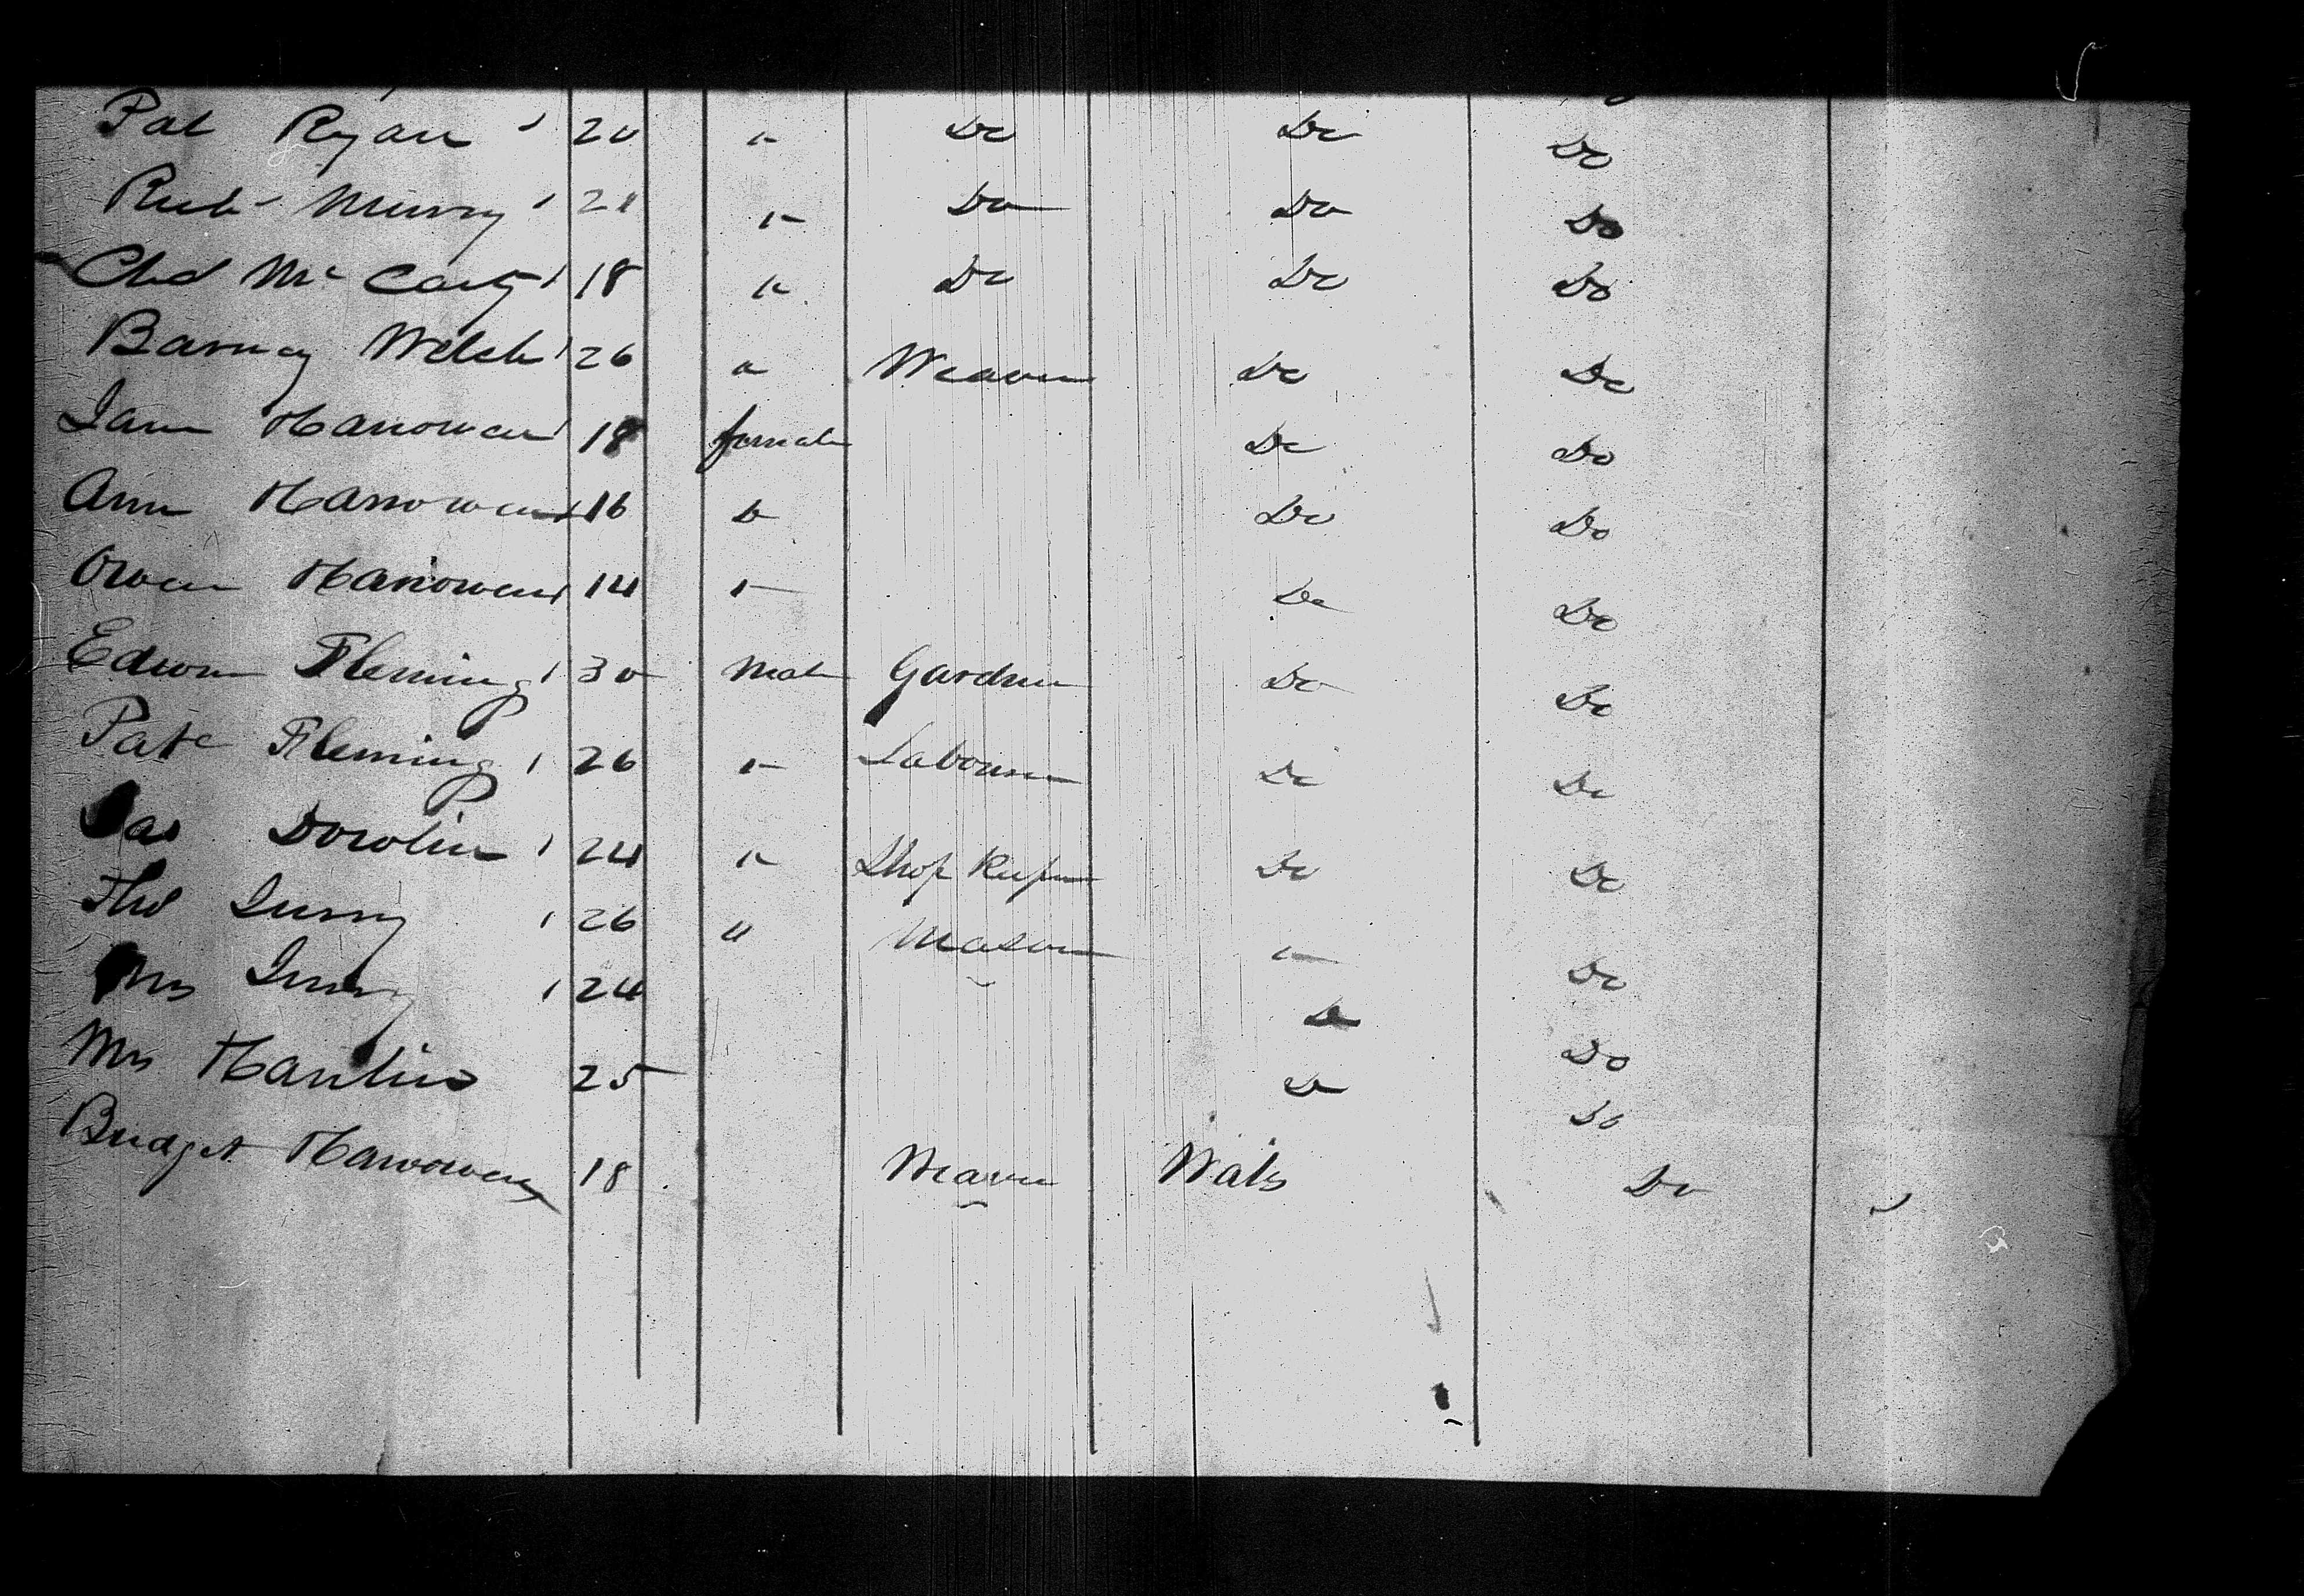 Pat Ryan 20 " Do Do Do
Richd Murry 21 " Do Do Do
Chs McCarty 18 " Do Do Do
Barney Welsh 26 " Weaver Do Do
Jane Hanowen 18 female Do Do
Ann Hanowen 16 Do Do Do
Owen Hanowen 14 " Do Do
Edwon Fleming 30 Male Gardner Do Do
Patk Fleming 26 " Labourer Do Do
Jas Dowlin 24 " Shop Keeper Do Do
Thos 26 " Mason " Do
Mrs 24 Do Do
Mrs 25 Do Do
Bridget Hanowen 18 Weaver Wals Do